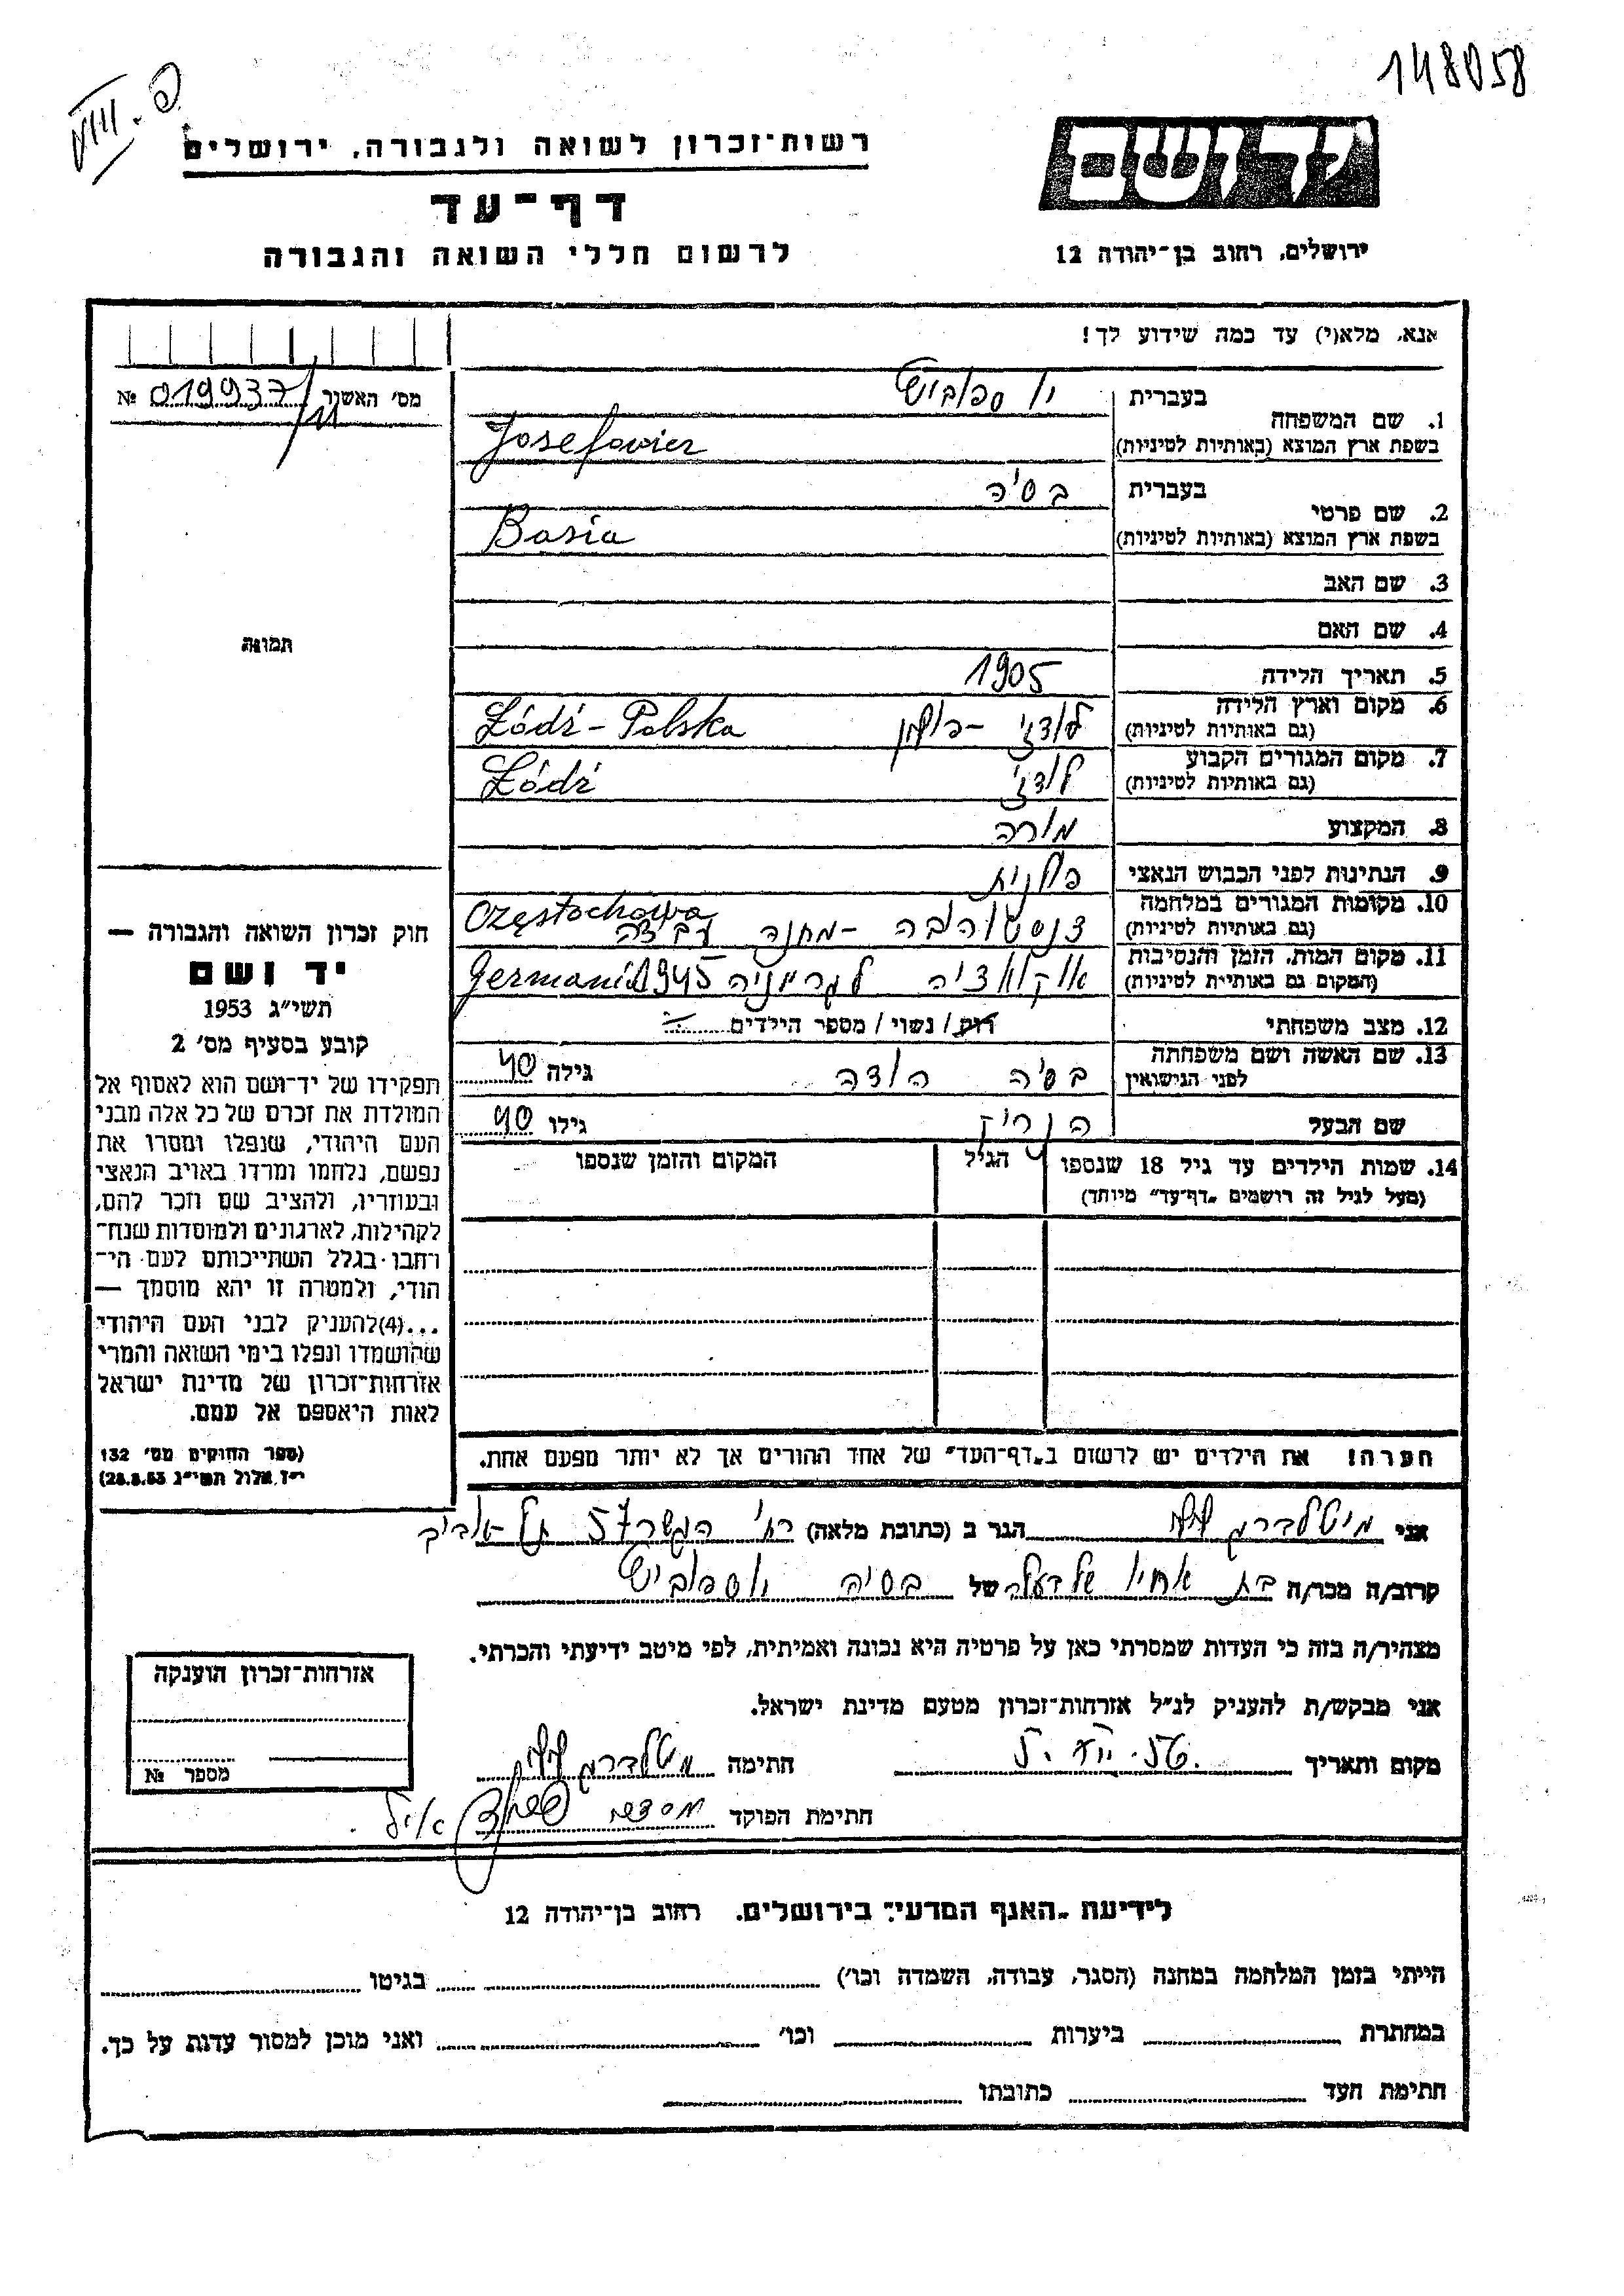 148058
VIII. פ
יד ושם
רשות־זכרון לשואה ולגבורה, ירושלים
דף־עד
לרשום חללי השואה והגבורה
ירושלים, רחוב בן־יהודה 12
אנא, מלא(י) עד כמה שידוע לך!
מס' האשור 019937 №
1. שם המשפחה
בעברית יוספוביץ
בשפת ארץ המוצא (באותיות לטיניות) Josefowicz
2. שם פרטי
בעברית בסיה
בשפת ארץ המוצא (באותיות לטיניות) Basia
3. שם האב
4. שם האם
תמונה
5. תאריך הלידה 1905
6. מקום וארץ הלידה לודז' - פולין Łódź - Polska
(גם באותיות לטיניות)
7. מקום המגורים הקבוע לודז' Łódź
(גם באותיות לטיניות)
8. המקצוע מורה
9. הנתינות לפני הכבוש הנאצי פולנית
10. מקומות המגורים במלחמה צנסטוחובה - מחנה עבודה Częstochowa
(גם באותיות לטיניות)
11. מקום המות, הזמן והנסיבות לגרמניה 1945 Germania
(המקום גם באותיות לטיניות)
12. מצב משפחתי רוק / נשוי / מספר הילדים
13. שם האשה ושם משפחתה
לפני הנישואין בסיה גילה 40
שם הבעל הנריק גילו 40
14. שמות הילדים עד גיל 18 שנספו הגיל המקום והזמן שנספו
(מעל לגיל זה רושמים „דף־עד" מיוחד)
חוק זכרון השואה והגבורה —
יד ושם
תשי"ג 1953
קובע בסעיף מס' 2
תפקידו של יד־ושם הוא לאסוף אל
המולדת את זכרם של כל אלה מבני
העם היהודי, שנפלו ומסרו את
נפשם, נלחמו ומרדו באויב הנאצי
ובעוזריו, ולהציב שם וזכר להם,
לקהילות, לארגונים ולמוסדות שנח־
רחבו בגלל השתייכותם לעם הי־
הודי, ולמטרה זו יהא מוסמך —
...(4)להעניק לבני העם היהודי
שהושמדו ונפלו בימי השואה והמרי
אזרחות־זכרון של מדינת ישראל
לאות היאספם אל עמם.
(ספר החוקים מס' 132
י"ז אלול תשי"ג 28.8.53)
הערה! את הילדים יש לרשום ב„דף־העד" של אחד ההורים אך לא יותר מפעם אחת.
אני מיטלברג הגר ב (כתובת מלאה) רח' הגשר 57 תל אביב
קרוב/ה מכר/ה בת אחיו של בעלה של בסיה יוספוביץ
מצהיר/ה בזה כי העדות שמסרתי כאן על פרטיה היא נכונה ואמיתית, לפי מיטב ידיעתי והכרתי.
אני מבקש/ת להעניק לנ"ל אזרחות־זכרון מטעם מדינת ישראל.
מקום ותאריך חתימה מיטלברג
חתימת הפוקד
אזרחות־זכרון הוענקה
מספר №
לידיעת „האגף המדעי" בירושלים, רחוב בן־יהודה 12
הייתי בזמן המלחמה במחנה (הסגר, עבודה, השמדה וכו') בגיטו
במחתרת ביערות וכו' ואני מוכן למסור עדות על כך.
חתימת העד כתובתו